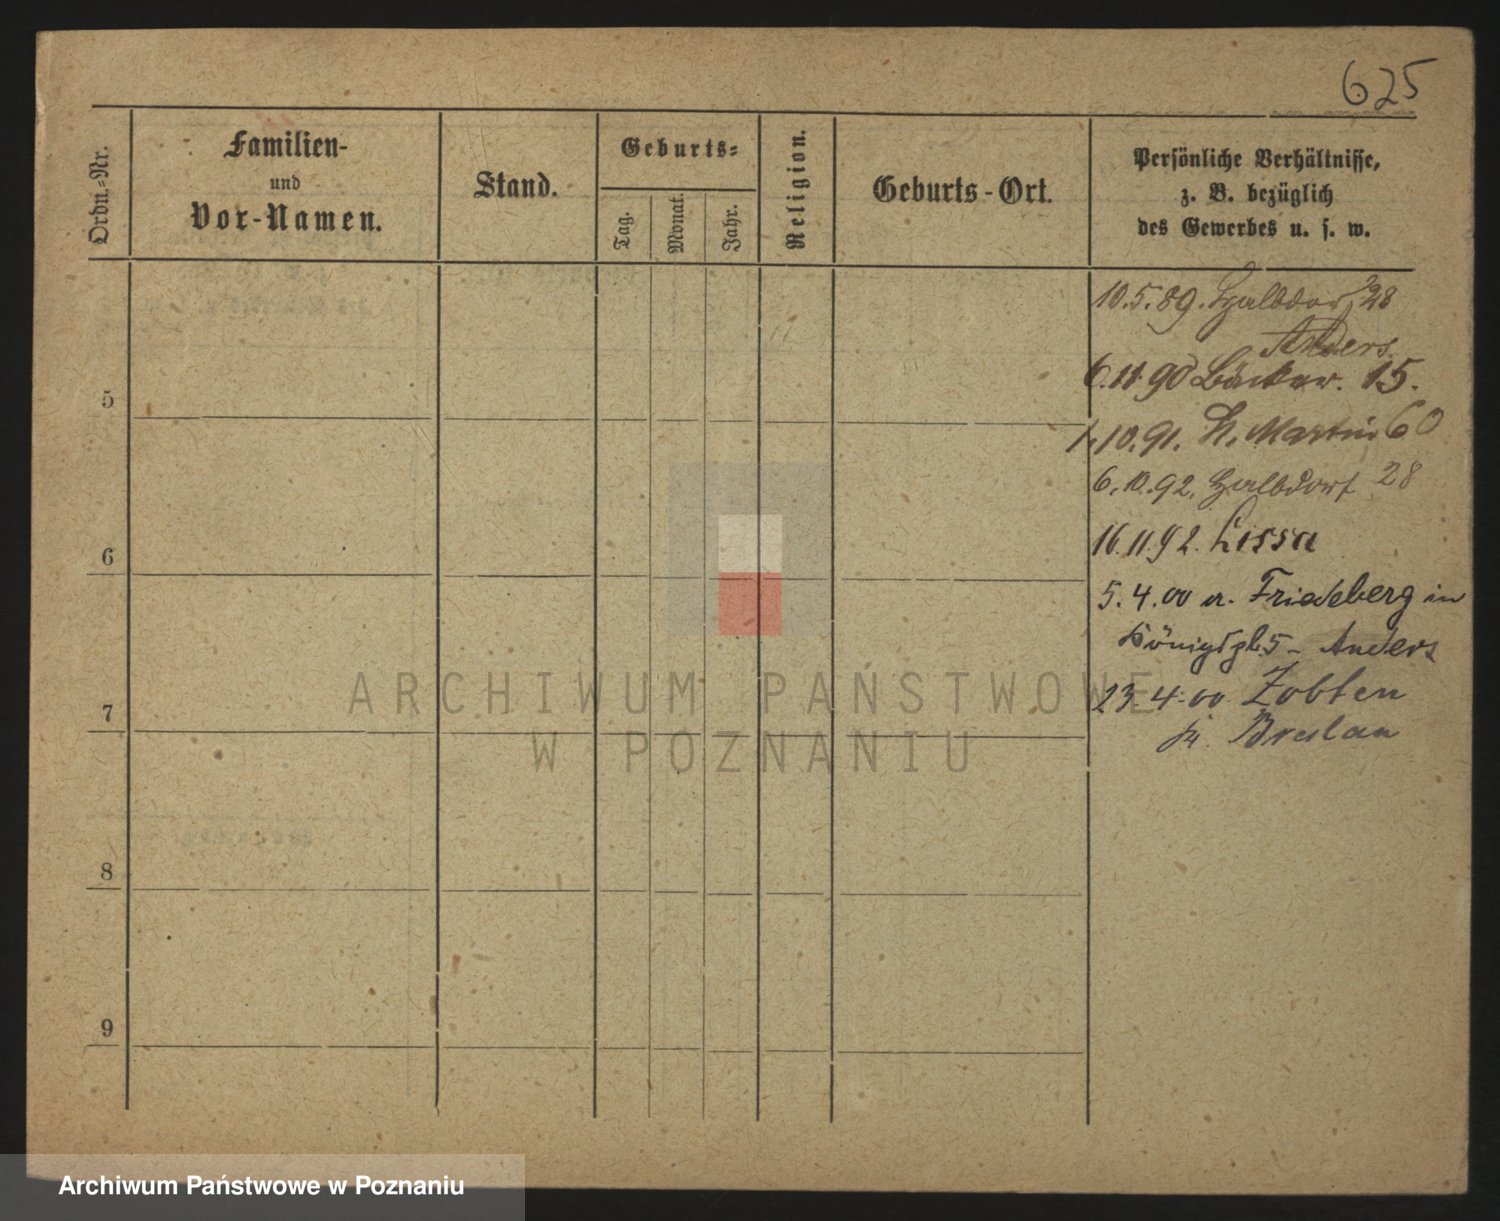 625
Ordn.-Nr.
Familien-
und
Vor-Namen.
Stand.
Geburts-
Tag.
Monat.
Jahr.
Religion.
Geburts-Ort.
Persönliche Verhältnisse,
z. B. bezüglich
des Gewerbes u. s. w.
10.5.89. Halbdorf 28
Anders.
6.11.90 Bäcker. 15.
1.10.91. St. Martin 60
6.10.92. Halbdorf 28
16.11.92. Lissa
5.4.00 a. Friedeberg in
5 - Anders
23.4.00 Zobten
Breslau
5
6
7
8
9
ARCHIWUM PAŃSTWOWE
W POZNANIU
Archiwum Państwowe w Poznaniu